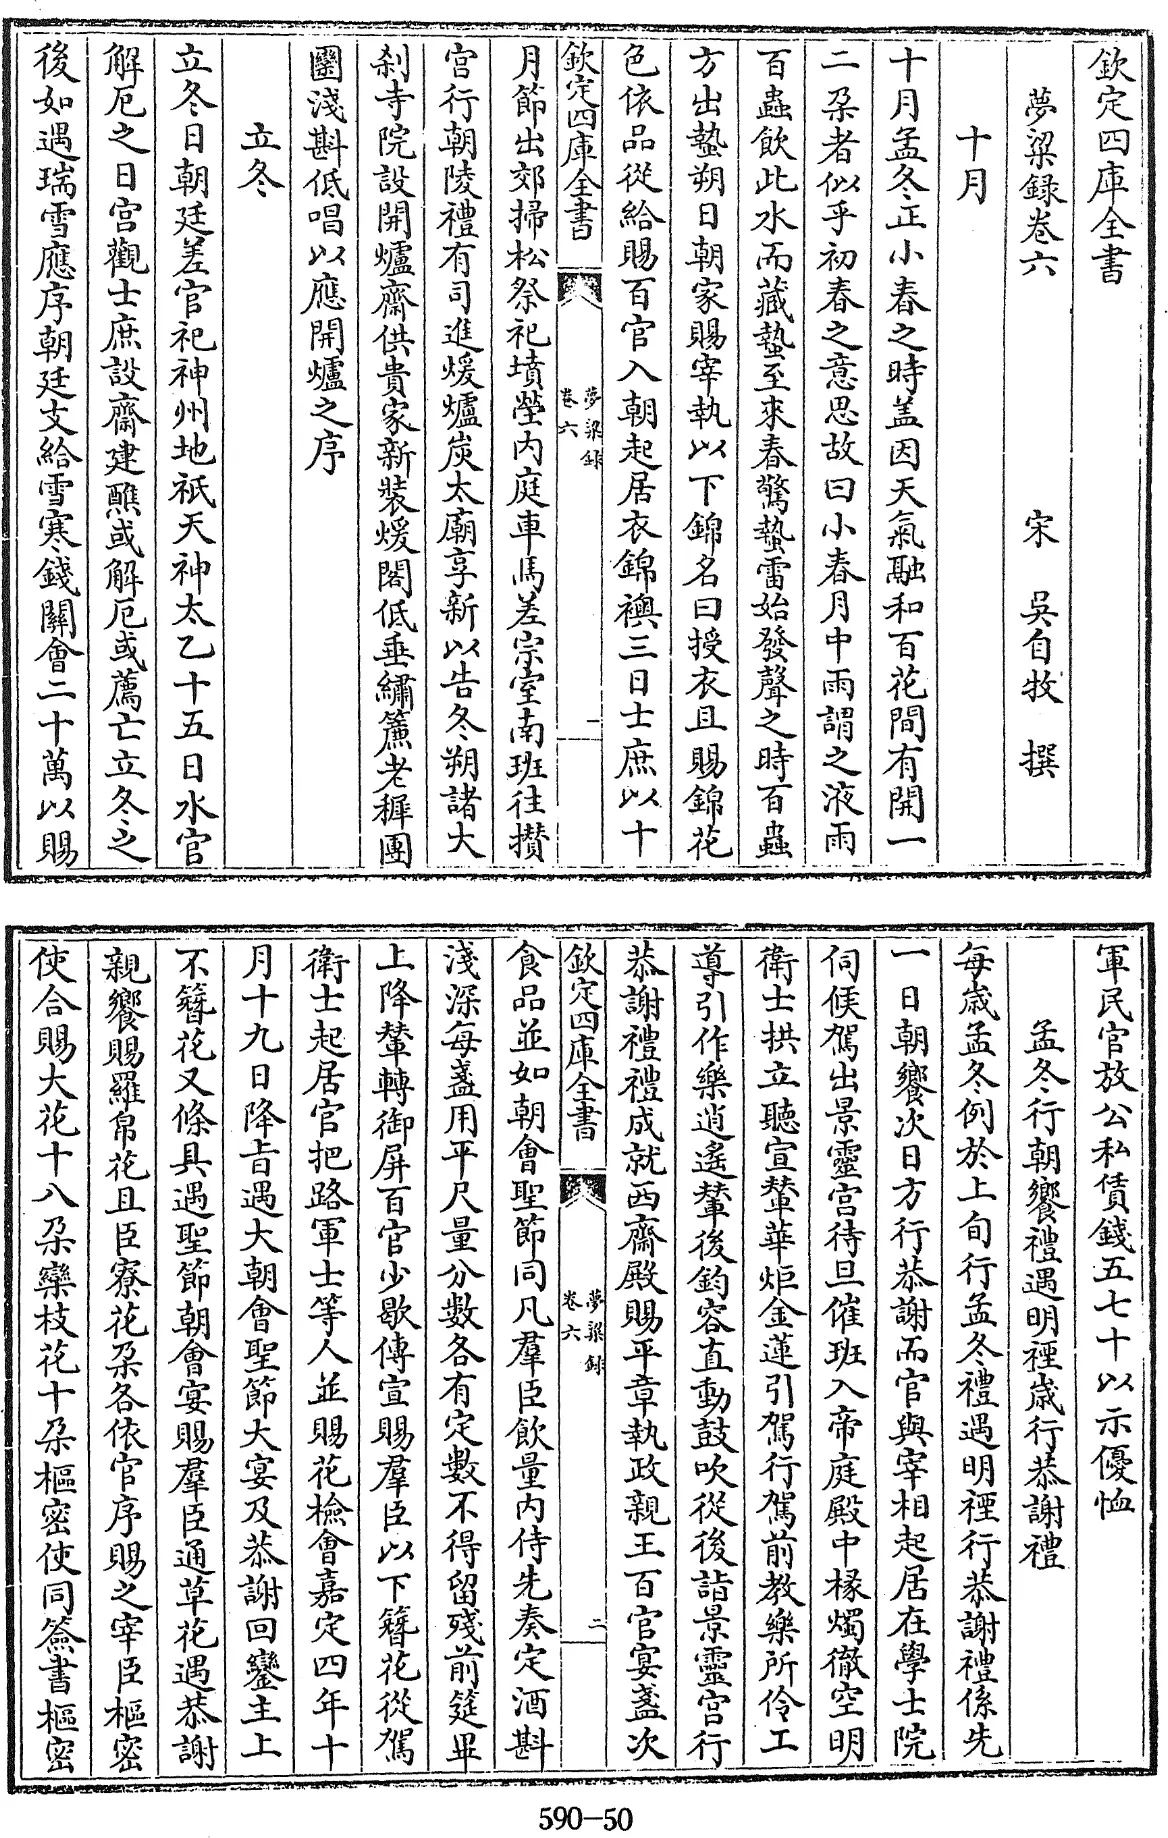 欽定四庫全書
夢粱録卷六
宋 吳自牧 撰
十月
十月孟冬正小春之時盖因天氣融和百花間有開一
二朶者似乎初春之意思故曰小春月中雨謂之液雨
百蟲飲此水而藏蟄至來春驚蟄雷始發聲之時百蟲
方出蟄朔日朝家賜宰執以下錦名曰授衣且賜錦花
色依品從給賜百官入朝起居衣錦襖三日士庶以十
欽定四庫全書
夢粱録
卷六
一
月節出郊掃松祭祀墳塋内庭車馬差宗室南班往攢
宮行朝陵禮有司進煖爐炭太廟享新以告冬朔諸大
刹寺院設開爐齋供貴家新裝煖閣低垂繡簾老穉團
圞淺斟低唱以應開爐之序
立冬
立冬日朝廷差官祀神州地祇天神太乙十五日水官
解厄之日宫觀士庶設齋建醮或解厄或薦亡立冬之
後如遇瑞雪應序朝廷支給雪寒錢關會二十萬以賜
軍民官放公私賃錢五七十以示優恤
孟冬行朝饗禮遇明禋歲行恭謝禮
每歲孟冬例於上旬行孟冬禮遇明禋行恭謝禮係先
一日朝饗次日方行恭謝而官與宰相起居在學士院
伺候駕出景靈宫待旦催班入帝庭殿中椽燭徹空明
衛士拱立聽宣輦華炬金蓮引駕行駕前教樂所伶工
導引作樂逍遙輦後鈞容直動鼓吹從後詣景靈宫行
恭謝禮禮成就西齋殿賜平章執政親王百官宴盞次
欽定四庫全書
夢粱録
卷六
二
食品並如朝會聖節同凡羣臣飲量内侍先奏定酒斟
淺深每盞用平尺量分數各有定數不得留殘前筵畢
上降輦轉御屏百官少歇傳宣賜羣臣以下簪花從駕
衛士起居官把路軍士等人並賜花檢會嘉定四年十
月十九日降旨遇大朝會聖節大宴及恭謝回鑾主上
不簪花又條具遇聖節朝會宴賜羣臣通草花遇恭謝
親饗賜羅帛花且臣寮花朶各依官序賜之宰臣樞密
使合賜大花十八朶欒枝花十朶樞密使同簽書樞密
590-50